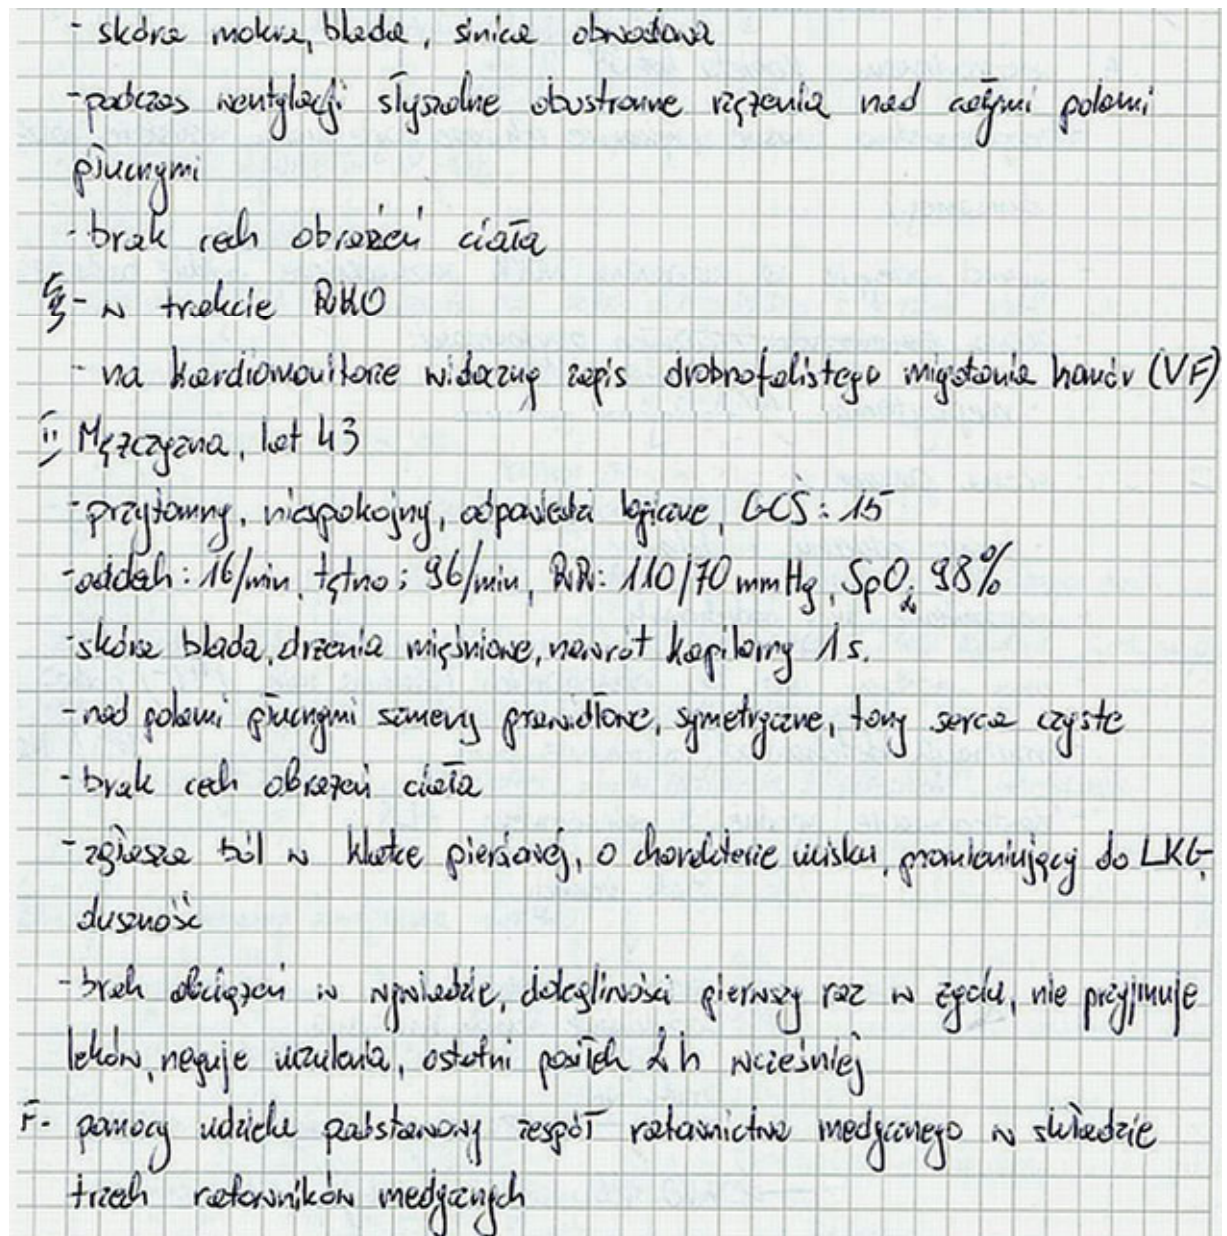 - skóra mokra, blada, sinica obwodowa
- podczas wentylacji słyszalne obustronne rzężenia nad całymi polami
płucnymi
- brak cech obrażeń ciała
- w trakcie RKO
- na kardiomonitorze widoczny zapis drobnofalistego migotania komór (VF)
Mężczyzna, lat 43
- przytomny, niespokojny, odpowiedzi logiczne, GCS: 15
- oddech: 16/min, tętno: 96/min, RR: 110/70 mmHg, SpO2 98%
- skóra blada, drżenia mięśniowe, nawrót kapilarny 1 s.
- nad polami płucnymi szmery prawidłowe, symetryczne, tony serca czyste
- brak cech obrażeń ciała
- zgłasza ból w klatce piersiowej, o charakterze ucisku, promieniujący do LKG,
duszność
- brak obciążeń w wywiadzie, dolegliwości pierwszy raz w życiu, nie przyjmuje
leków, neguje uczulenia, ostatni posiłek 2 h wcześniej
F. pomocy udziela podstawowy zespół ratownictwa medycznego w składzie
trzech ratowników medycznych